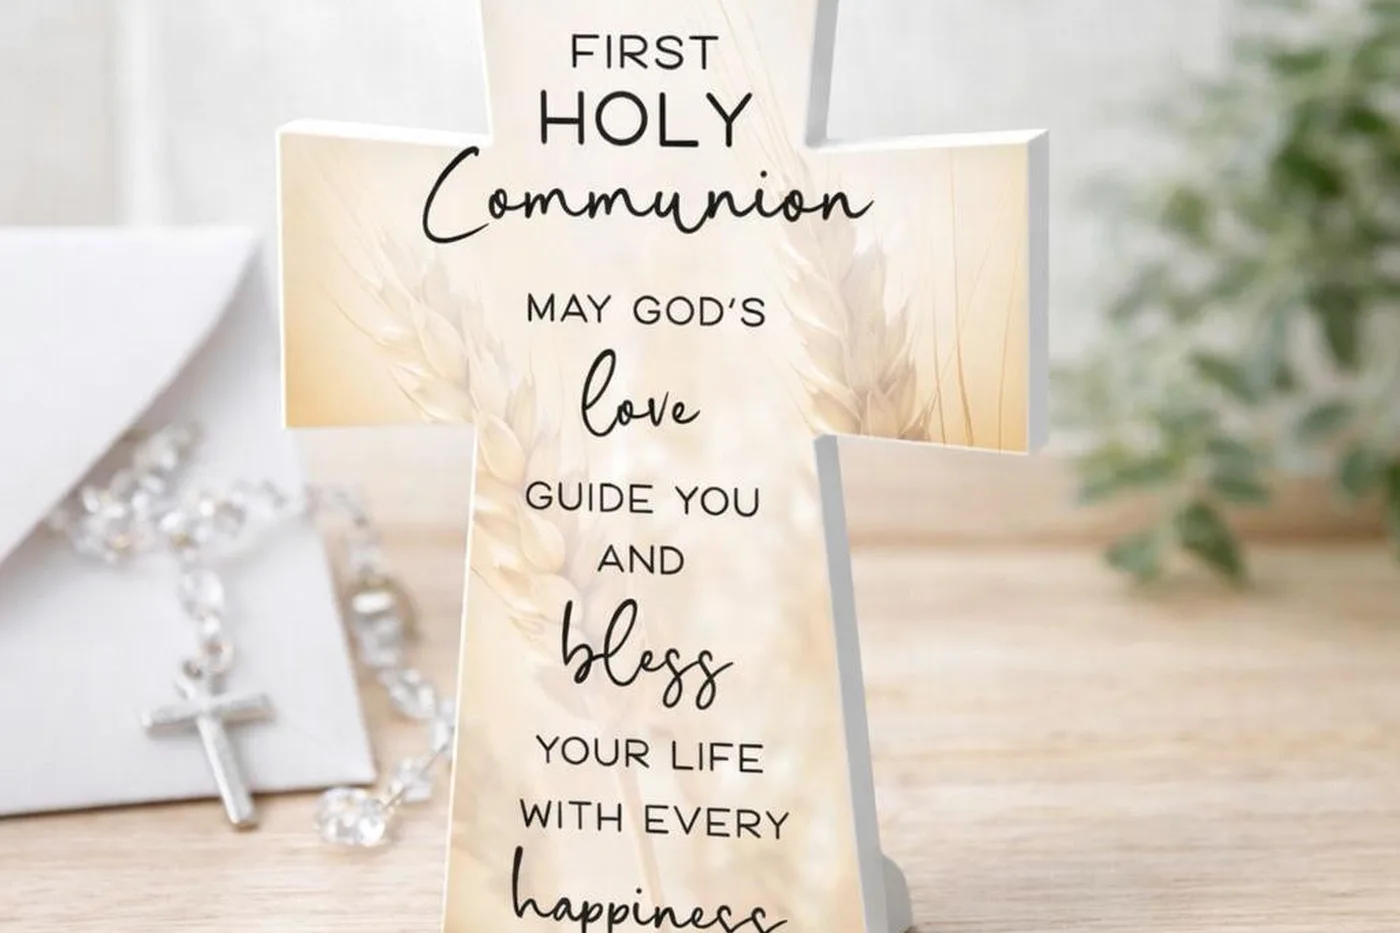 FIRST
HOLY
Communion
MAY GOD'S
love
GUIDE YOU
AND
bless
YOUR LIFE
WITH EVERY
happiness